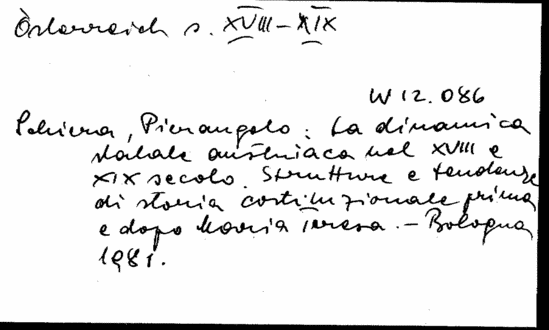 Österreich s. XVIII – XIX
W 12.086
Schiera, Pierangelo: La dinamica
statale austriaca nel XVIII e
XIX secolo. Strutture e tendenze
di storia costituzionale prima
e dopo Maria Teresa. – Bologna
1981.